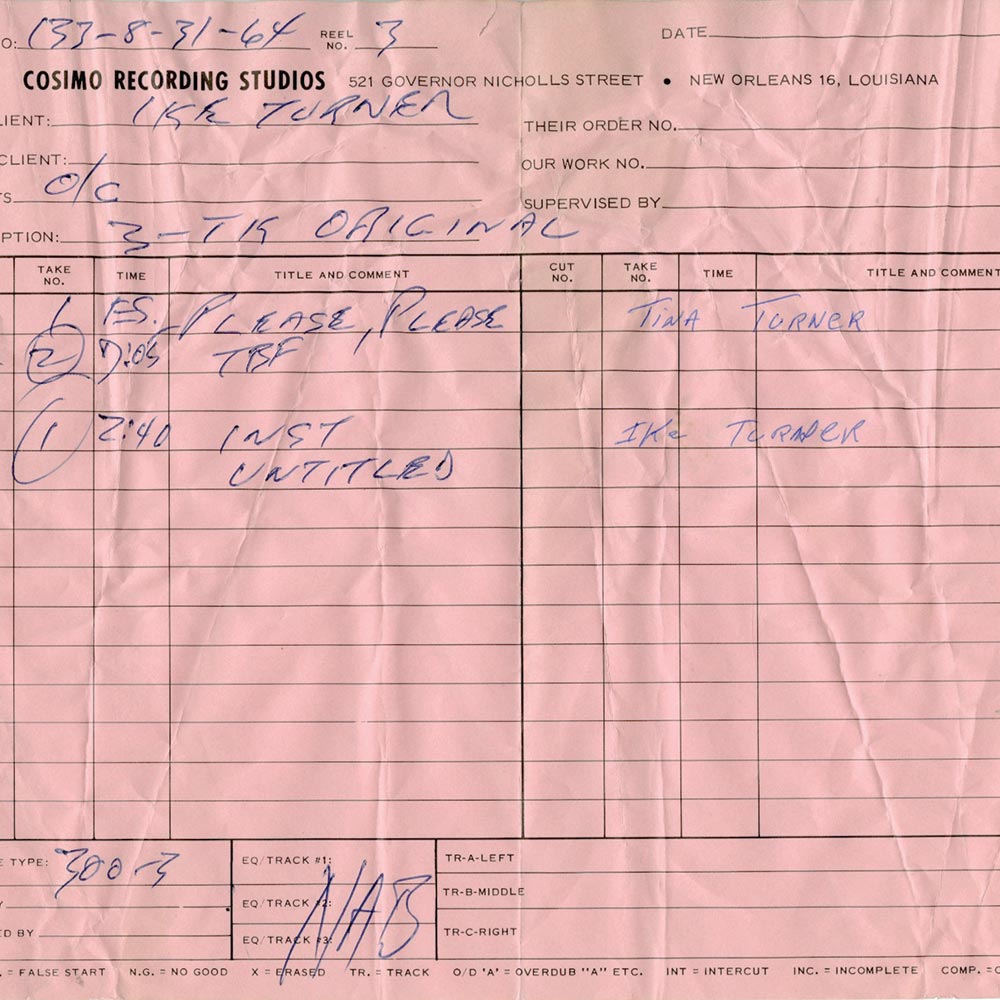 O: 133-8-31-64 REEL NO. 3 DATE
COSIMO RECORDING STUDIOS 521 GOVERNOR NICHOLLS STREET • NEW ORLEANS 16, LOUISIANA
LIENT: IKE TURNER THEIR ORDER NO.
CLIENT: OUR WORK NO.
S O/C SUPERVISED BY
PTION: 3-TK ORIGINAL
TAKE NO. TIME TITLE AND COMMENT CUT NO. TAKE NO. TIME TITLE AND COMMENT
1 F.S. PLEASE, PLEASE TINA TURNER
2 TBF
1 2:40 INST IKE TURNER
UNTITLED
E TYPE: 300-3 EQ/TRACK #1: TR-A-LEFT
Y EQ/TRACK #2: NAB TR-B-MIDDLE
ED BY EQ/TRACK #3: TR-C-RIGHT
. = FALSE START N.G. = NO GOOD X = ERASED TR. = TRACK O/D 'A' = OVERDUB "A" ETC. INT = INTERCUT INC. = INCOMPLETE COMP. =